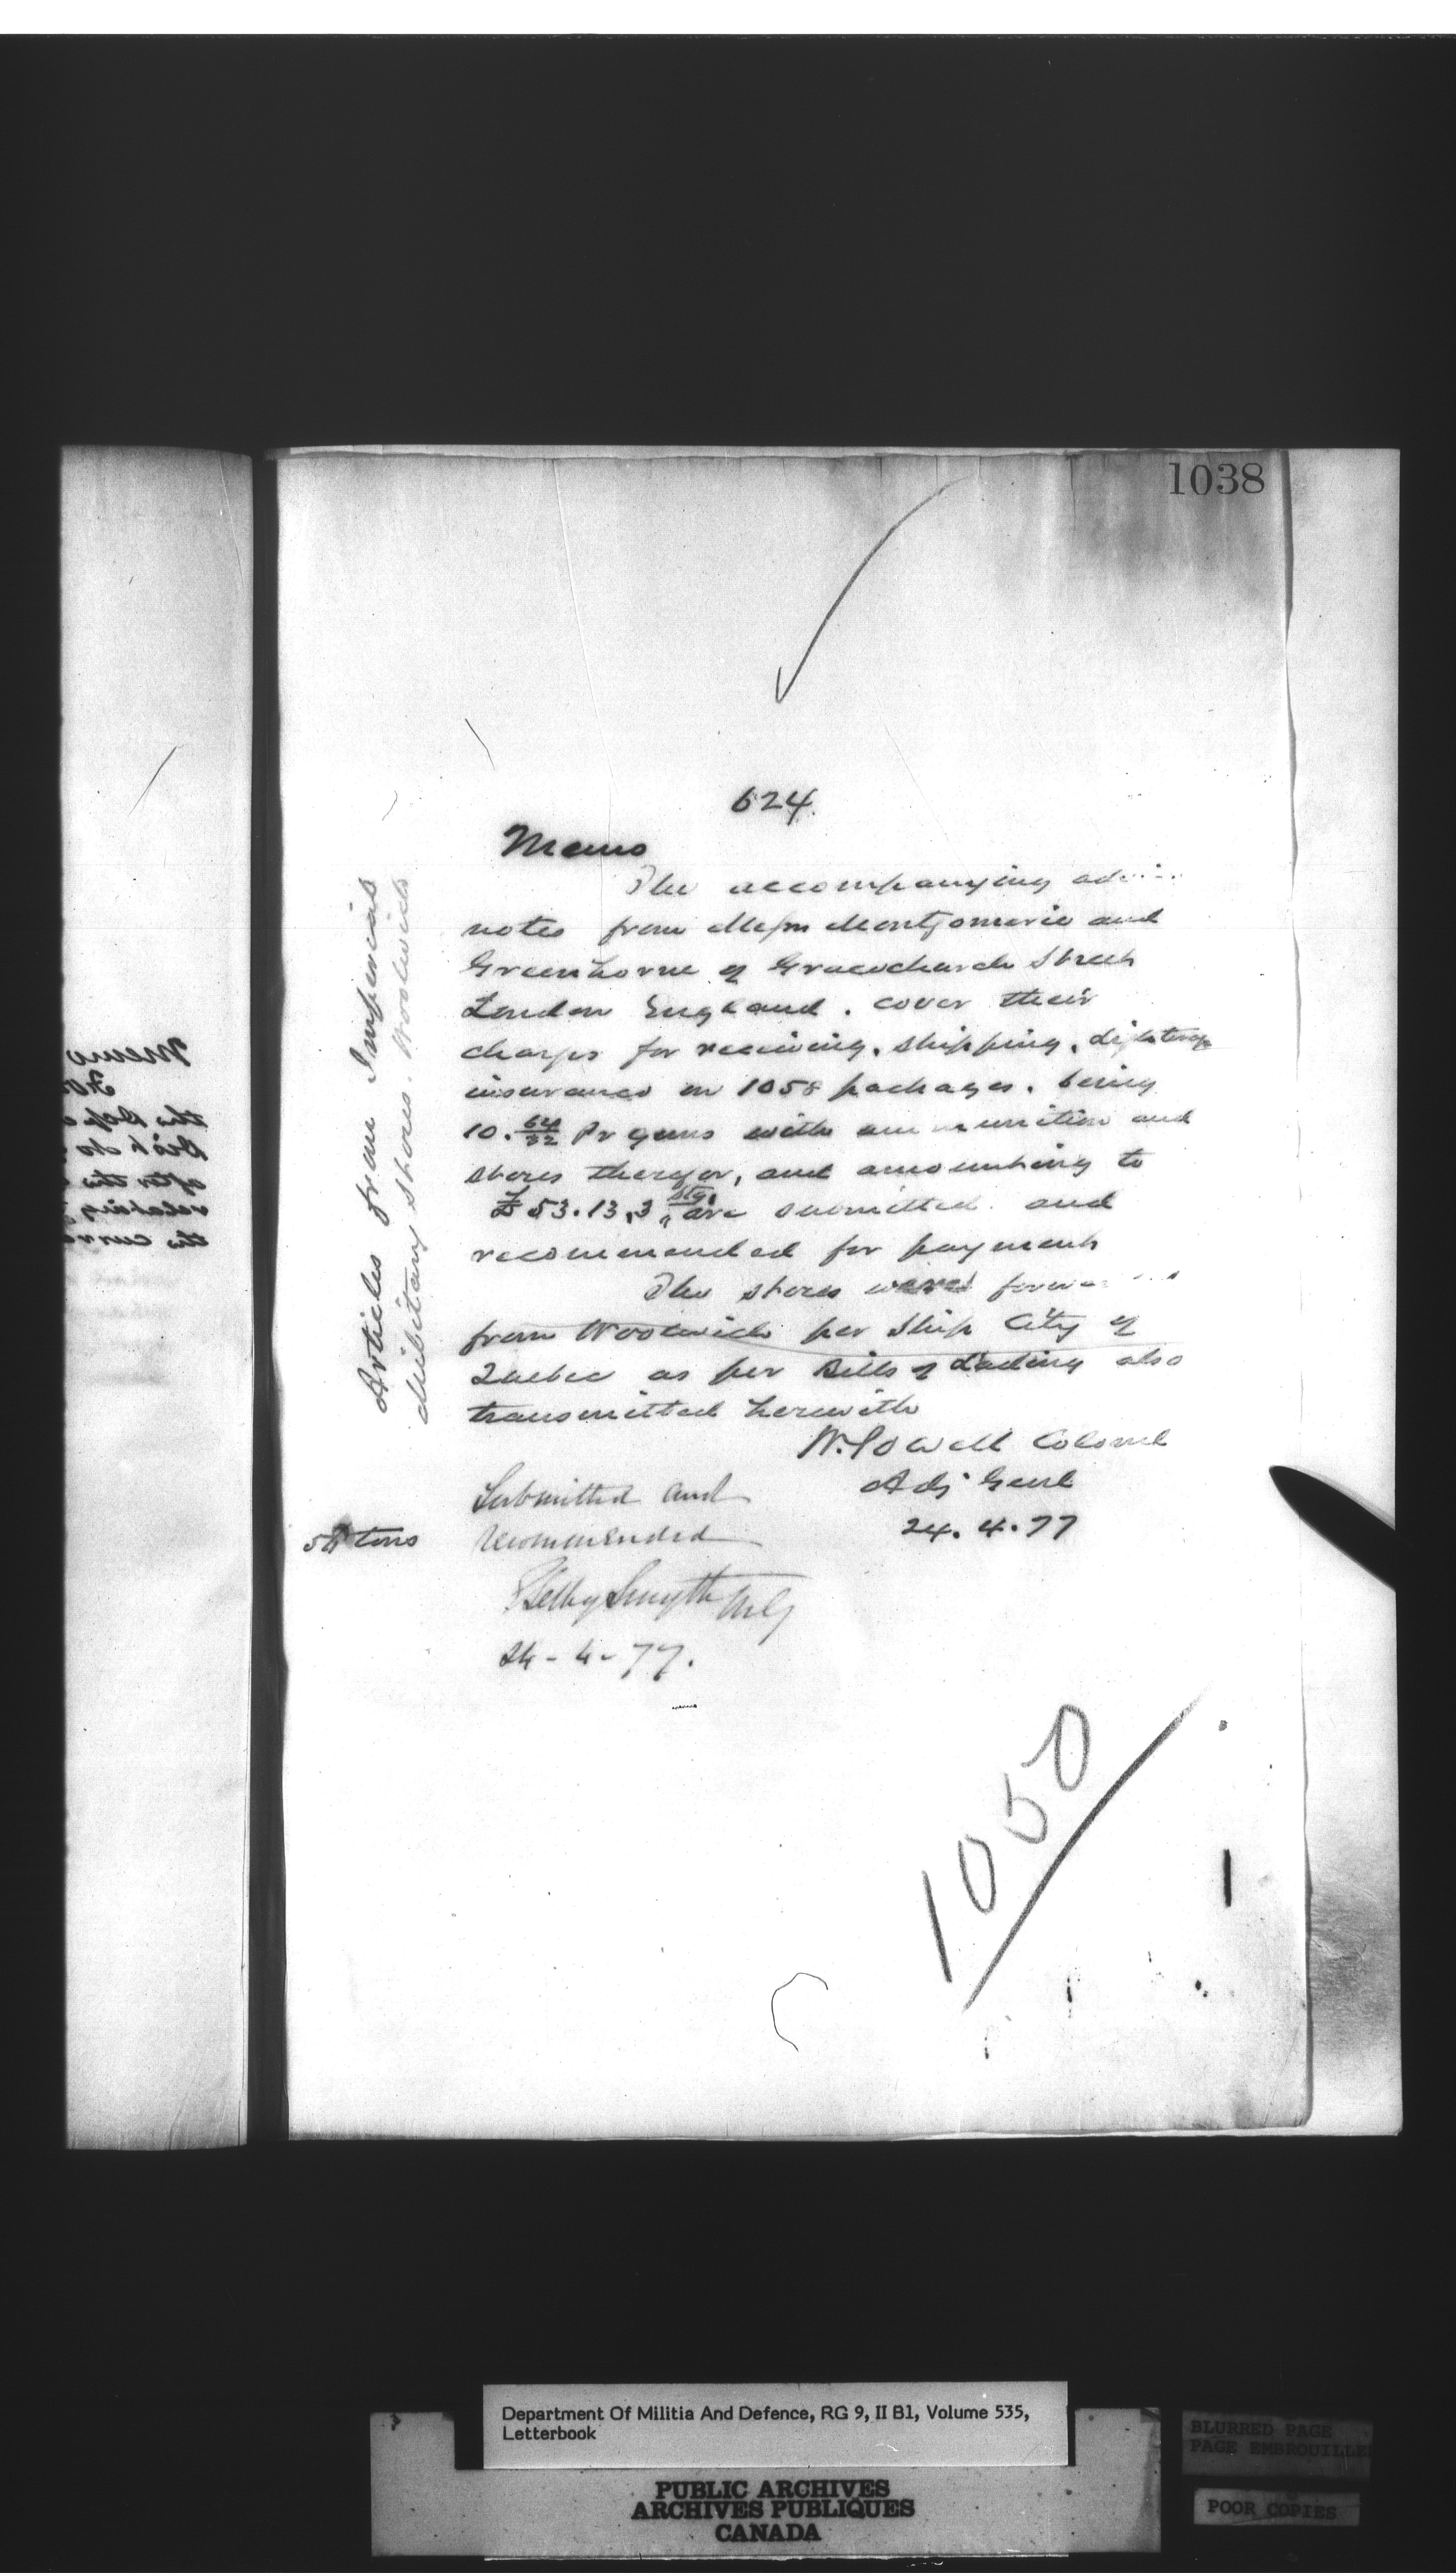 1038
624
Memo
The accompanying
notes from Messrs Montgomerie and
Greenhorne of Gracechurch Street
London England. cover their
charges for receiving, shipping, lighterage
insurance on 1058 packages. being
10. 64/32 Pr guns with ammunition and
stores therefor, and amounting to
£53.13.3 stg. are submitted and
recommended for payment
The stores were
from Woolwich per Ship City of
Quebec as per Bills of Lading also
transmitted herewith
W. Powell Colonel
Adj Genl
24. 4. 77
Submitted and
recommended
Selby Smyth MG
24-4-77.
tons
Articles from Imperial
Military Stores. Woolwich
1050
Memo
the
after the
relating
the
Department Of Militia And Defence, RG 9, II B1, Volume 535,
Letterbook
PUBLIC ARCHIVES
ARCHIVES PUBLIQUES
CANADA
BLURRED PAGE
PAGE EMBROUILLE
POOR COPIES